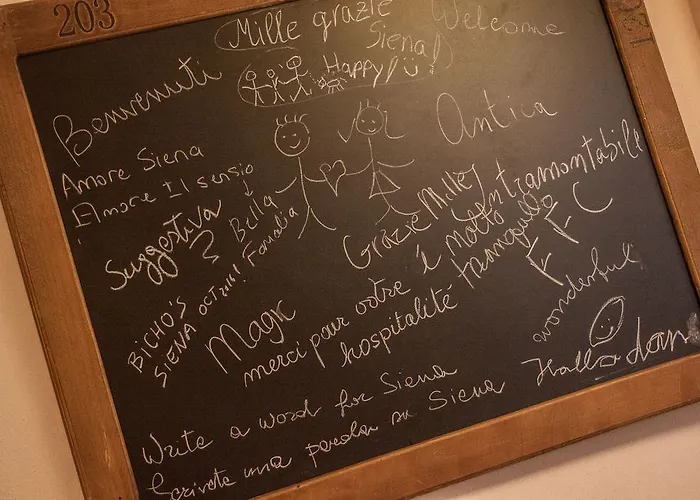 203
120
Mille grazie
Siena!
Welcome
Happy!
Benvenuti
Antica
Amore Siena
Amore Il sensio
Suggestiva
Bella
Famalia
Grazie Mille
intramontabile
BICHO'S
SIENA OCT 2111
Magic
é molto tranquillo
F F C
merci pour votre
hospitalité
wonderful
Hallo
dan
Write a word for Siena
Scrivete una parola su Siena